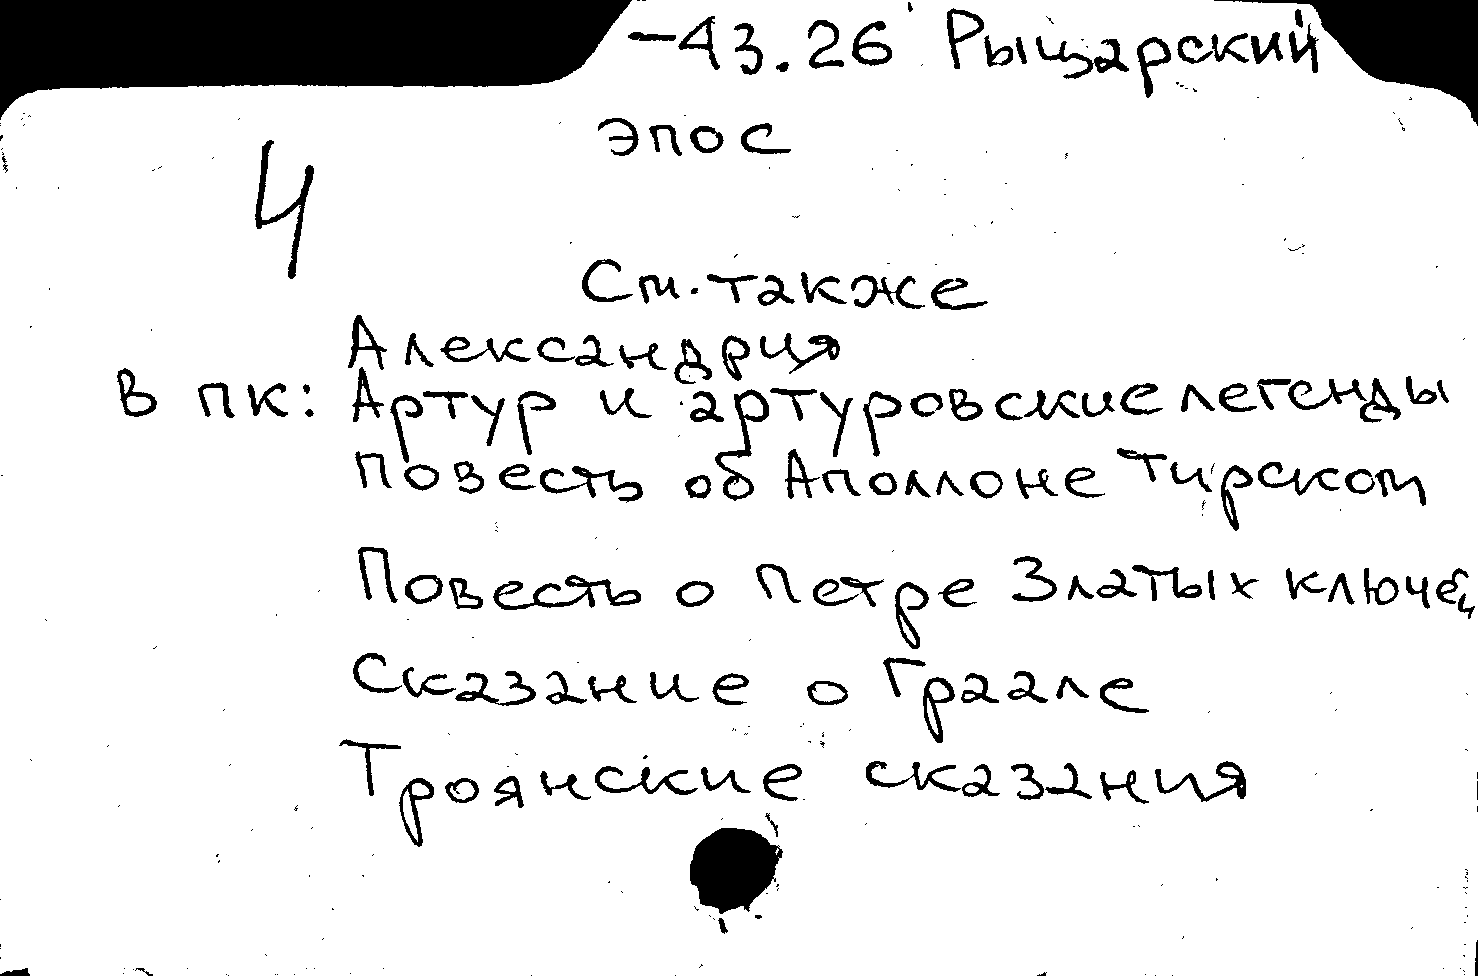 -43.26 Рыцарский
эпос
4
См. также
Александрия
в ПК: Артур и артуровские легенды
Повесть об Аполлоне Тирском
Повесть о Петре Златых ключей
Сказание о Граале
Троянские сказания